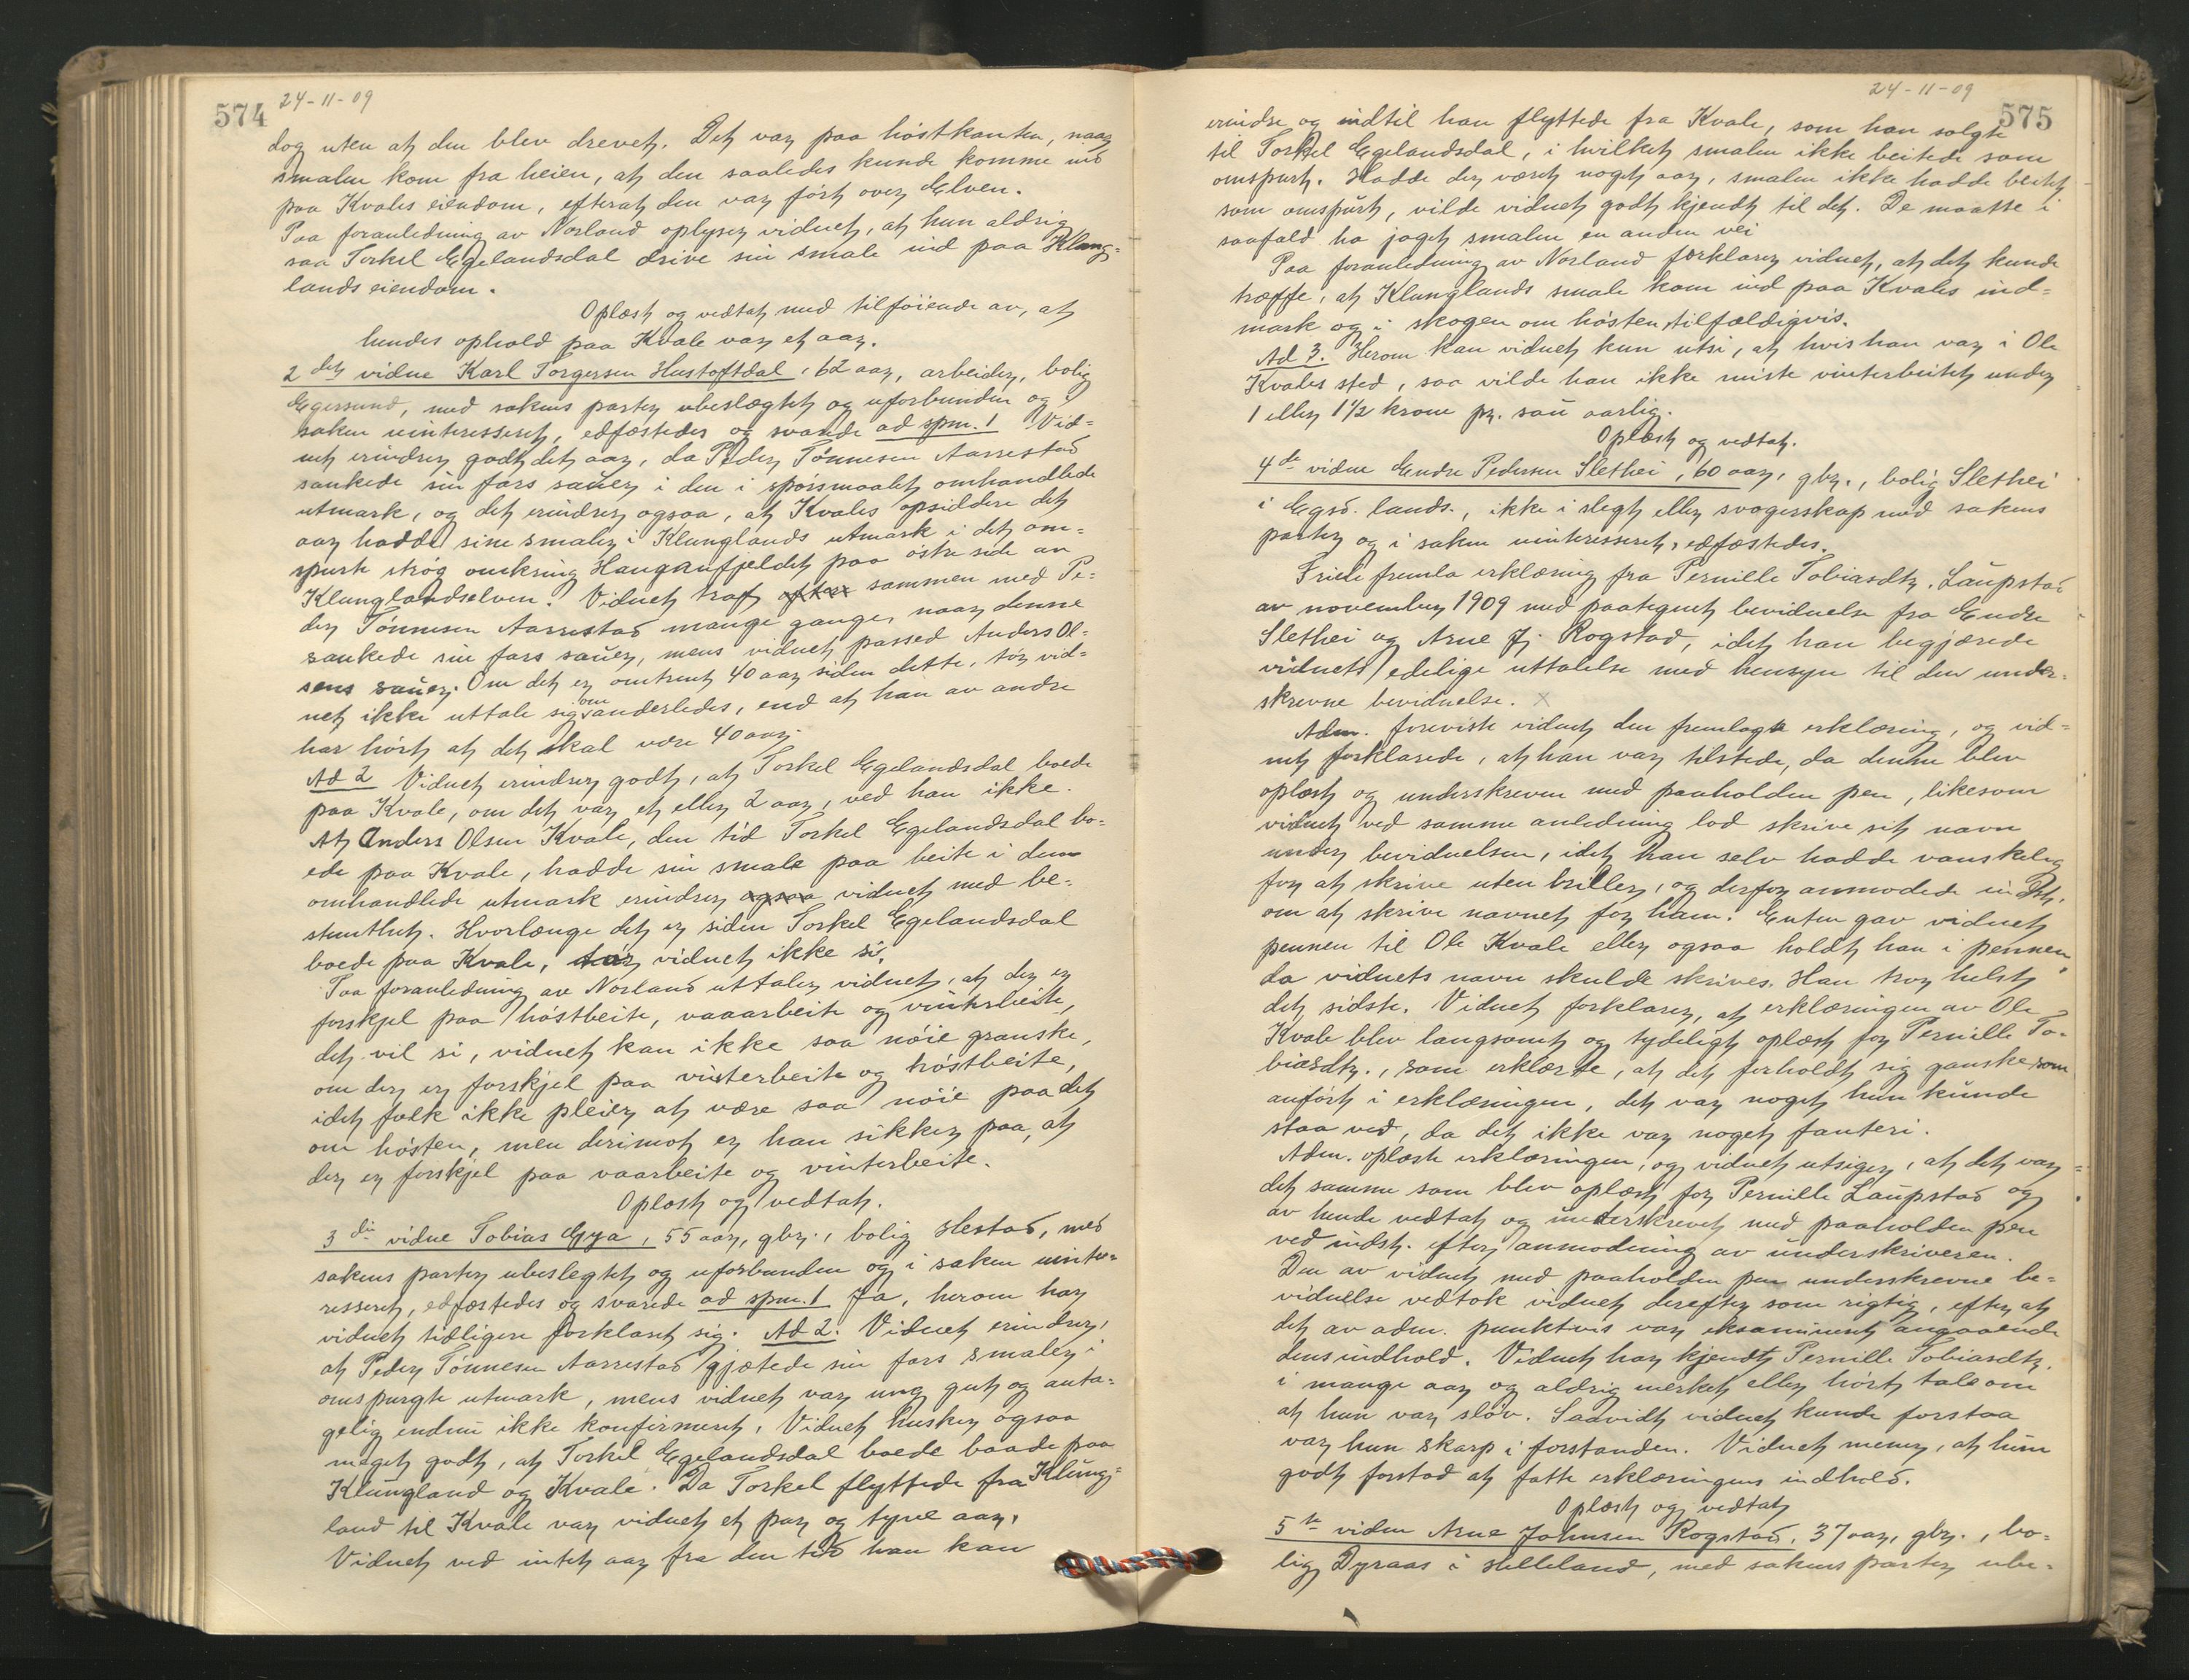 574
24-11-09
dog uten at den blev drevet. Det var paa høstkanten, naar
smalen kom fra heien, at den saaledes kunde komme ind
paa Kvales eiendom, efterat den var ført over Elven.
Paa foranledning av Norland oplyser vidnet, at hun aldrig
saa Torkel Egelandsdal drive sin smale ind paa Klung-
lands eiendom.
Oplæst og vedtat med tilføiende av, at
hendes ophold paa Kvale var et aar.
2det vidne Karl Torgersen Hustoftdal, 62 aar, arbeider, bolig
Egersund, med sakens parter ubeslægtet og uforbunden og i
saken uinteresseret, edfæstedes og svarede ad spm. 1 Vid-
net erindrer godt det aar, da Peder Tønnesen Aarrestad
sankede sin fars sauer i den i spørsmaalet omhandlede
utmark, og det erindrer ogsaa, at Kvales opsiddere det
aar hadde sine smaler i Klunglands utmark i det om-
spurte strøg omkring Hauganfjeldet paa østre side av
Klunglandselven. Vidnet traf oftere sammen med Pe-
der Tønnesen Aarrestad mange gange, naar denne
sankede sin fars sauer, mens vidnet passed Anders Ol-
sens sauer. Om det er omtrent 40 aar siden dette, tør vid-
net ikke uttale sig om anderledes, end at han av andre
har hørt at det skal være 40 aar.
Ad 2 Vidnet erindrer godt, at Torkel Egelandsdal boede
paa Kvale, om det var et eller 2 aar, ved han ikke.
At Anders Olsen Kvale, den tid Torkel Egelandsdal bo-
ede paa Kvale, hadde sin smale paa beite i den
omhandlede utmark erindrer ogsaa vidnet med be-
stemthet. Hvorlænge det er siden Torkel Egelandsdal
boede paa Kvale, tør vidnet ikke si.
Paa foranledning av Norland uttaler vidnet, at der er
forskjel paa høstbeite, vaaarbeite og vinterbeite,
det vil si, vidnet kan ikke saa nøie granske,
om der er forskjel paa vinterbeite og høstbeite,
idet folk ikke pleier at være saa nøie paa det
om høsten, men derimot er han sikker paa, at
der er forskjel paa vaarbeite og vinterbeite.
Oplæst og vedtat.
3die vidne Tobias Gya, 55 aar, gbr., bolig Hestad, med
sakens parter ubeslegtet og uforbunden og i saken uinte-
resseret, edfæstedes og svarede ad spm. 1 Ja, herom har
vidnet tidligere forklaret sig. Ad 2. Vidnet erindrer,
at Peder Tønnesen Aarrestad gjætede sin fars smaler i
omspurgte utmark, mens vidnet var ung gut og anta-
gelig endnu ikke konfirmeret. Vidnet husker ogsaa
meget godt, at Torkel Egelandsdal boede baade paa
Klungland og Kvale. Da Torkel flyttede fra Klung-
land til Kvale var vidnet et par og tyve aar.
Vidnet ved intet aar fra den tid han kan
24-11-09
575
erindre og indtil han flyttede fra Kvale, som han solgte
til Torkel Egelandsdal, i hvilket smalen ikke beitede som
omspurt. Hadde der været noget aar, smalen ikke hadde beitet
som omspurt, vilde vidnet godt kjendt til det. De maatte i
saafald ha jaget smalen en anden vei
Paa foranledning av Norland forklarer vidnet, at det kunde
træffe, at Klunglands smale kom ind paa Kvales ind-
mark og i skogen om høsten, tilfældigvis.
Ad 3. Herom kan vidnet kun utsi, at hvis han var i Ole
Kvales sted, saa vilde han ikke miste vinterbeitet under
1 eller 1½ krone pr. sau aarlig.
Oplæst og vedtat.
4de vidne Endre Pedersen Slethei, 60 aar, gbr., bolig Slethei
i Egsd. lands., ikke i slegt eller svogerskap med sakens
parter og i saken uinteresseret, edfæstedes.
Friele fremla erklæring fra Pernille Tobiasdtr. Laupstad
av november 1909 med paategnet bevidnelse fra Endre
Slethei og Arne J. Rogstad, idet han begjærede
vidnets edelige uttalelse med hensyn til den under-
skrevne bevidnelse. x
Adm. foreviste vidnet den fremlagte erklæring, og vid-
net forklarede, at han var tilstede, da denne blev
oplæst og underskreven med paaholden pen, likesom
vidnet ved samme anledning lod skrive sit navn
under bevidnelsen, idet han selv hadde vanskelig
for at skrive uten briller, og derfor anmodede indst.
om at skrive navnet for ham. Enten gav vidnet
pennen til Ole Kvale eller ogsaa holdt han i pennen,
da vidnets navn skulde skrives. Han tror helst
det sidste. Vidnet forklarer, at erklæringen av Ole
Kvale blev langsomt og tydeligt oplæst for Pernille To-
biasdtr., som erklærte, at det forholdt sig ganske som
anført i erklæringen, det var noget hun kunde
staa ved, da det ikke var noget fanteri.
Adm. oplæste erklæringen, og vidnet utsiger, at det var
det samme som blev oplæst for Pernille Laupstad og
av hende vedtat og underskrevet med paaholden pen
ved indst. efter anmodning av underskriveren.
Den av vidnet med paaholden pen underskrevne be-
vidnelse vedtok vidnet derefter som rigtig, efter at
det av adm. punktvis var eksamineret angaaende
dens indhold. Vidnet har kjendt Pernille Tobiasdtr.
i mange aar og aldrig merket eller hørt tale om
at hun var sløv. Saavidt vidnet kunde forstaa
var hun skarp i forstanden. Vidnet mener, at hun
godt forstod at fatte erklæringens indhold.
Oplæst og vedtat
5te vidne Arne Johnsen Rogstad, 37 aar, gbr., bo-
lig Dyraas i Helleland, med sakens parter ube-